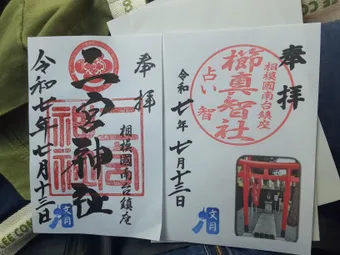 奉拝
二宮神社
相模國南台鎮座
令和七年七月十三日
文月
奉拝
相模國南台鎮座
櫛真智社
占い 智
令和七年七月十三日
文月